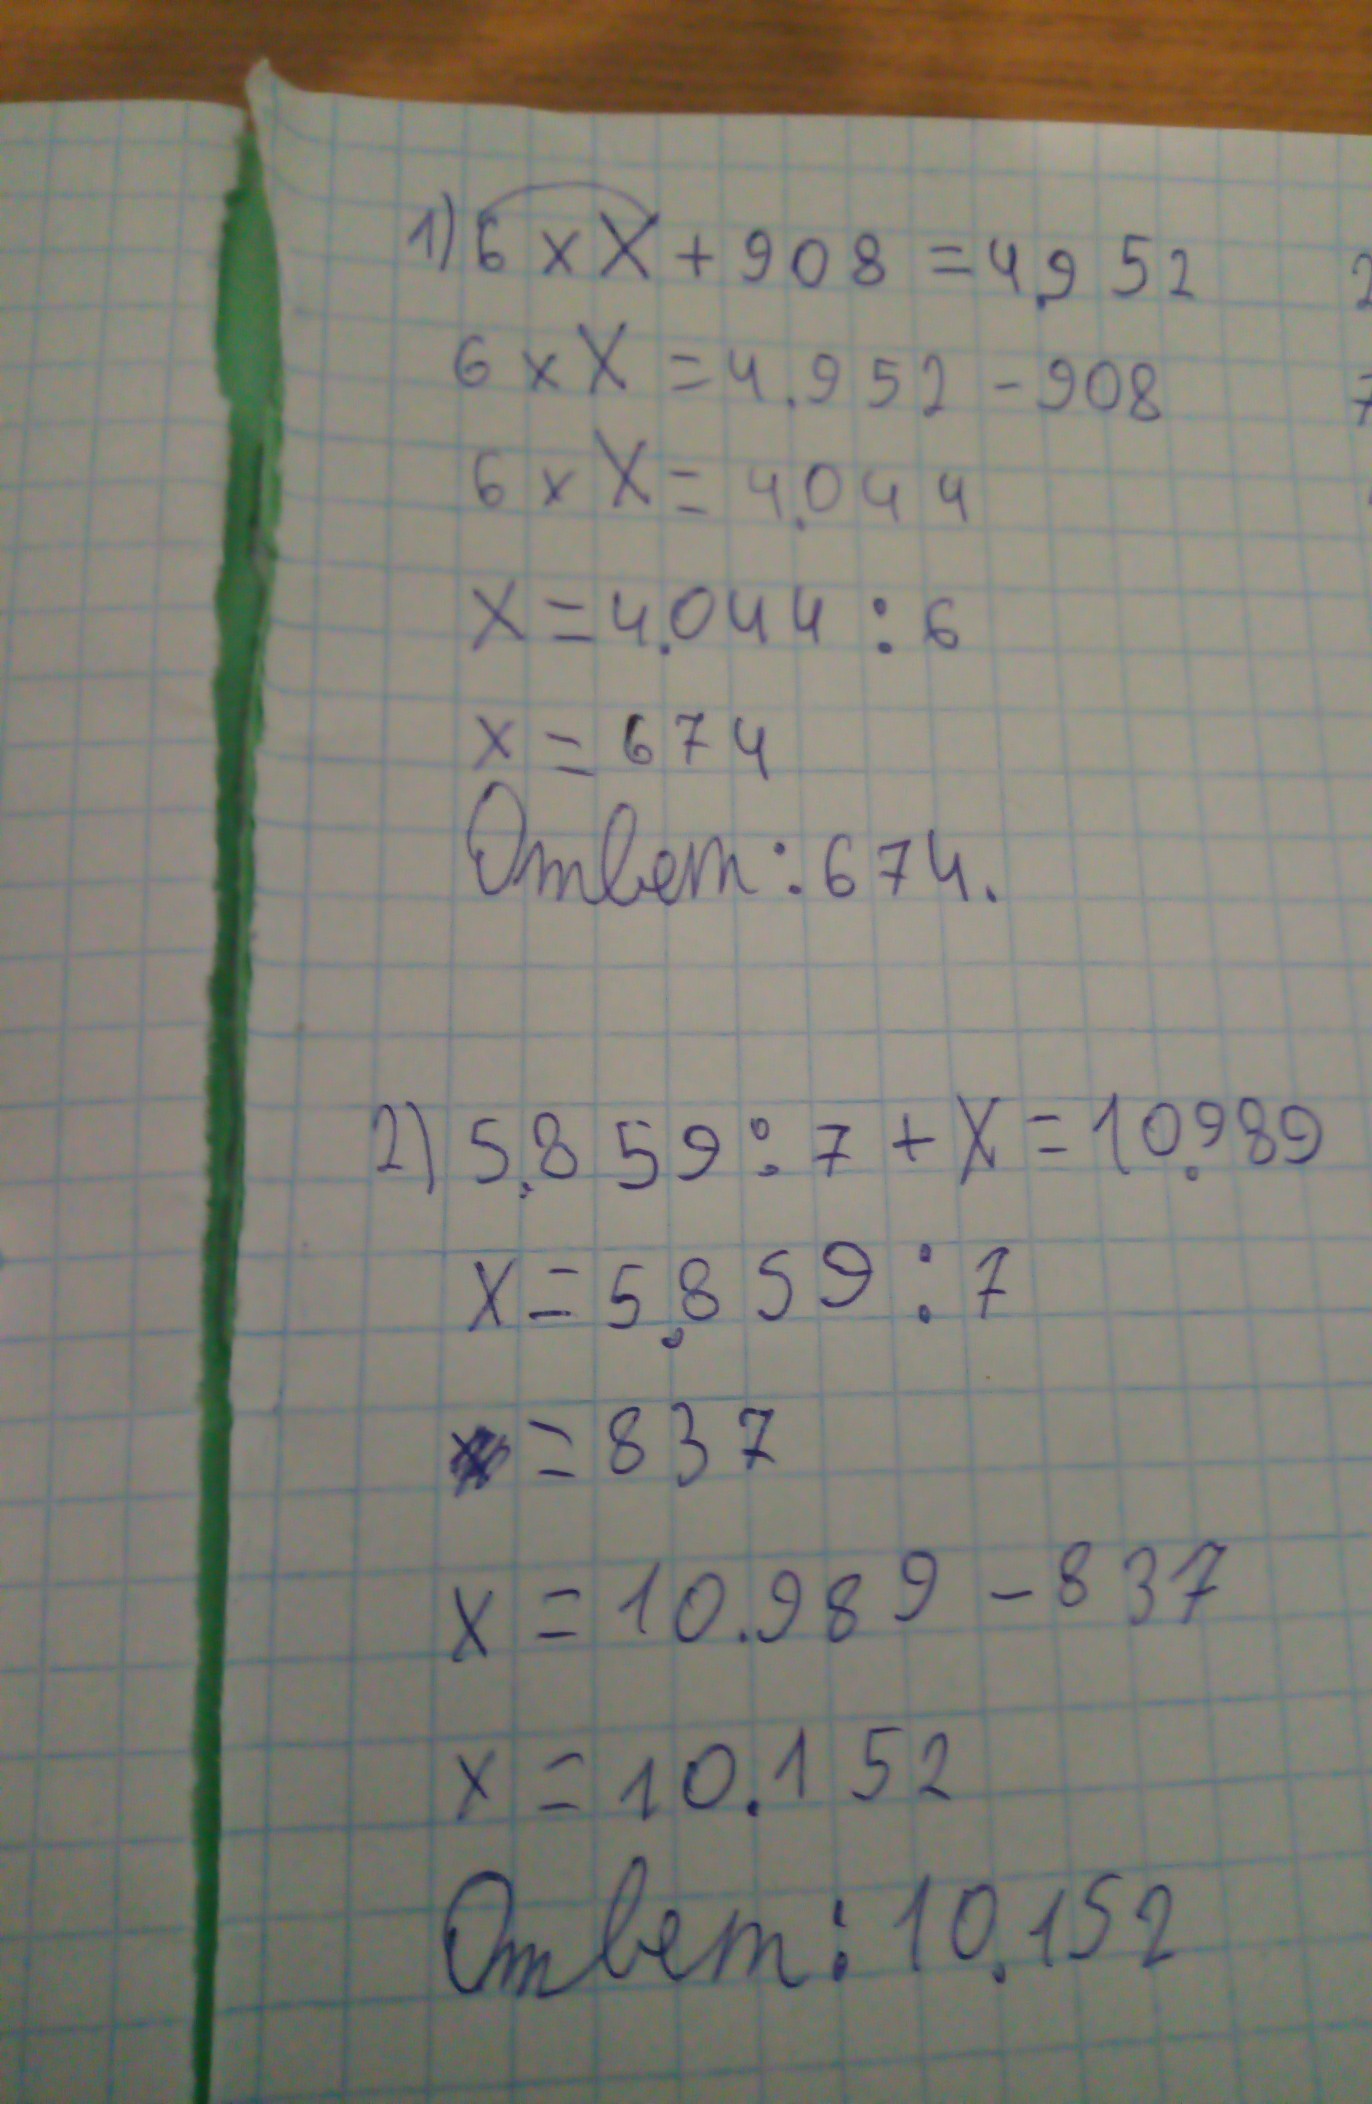 1) 6 x X + 908 = 4.952
6 x X = 4.952 - 908
6 x X = 4.044
X = 4.044 : 6
x = 674
Ответ: 674.
2) 5.859 : 7 + X = 10.989
X = 5.859 : 7
= 837
x = 10.989 - 837
x = 10.152
Ответ: 10.152